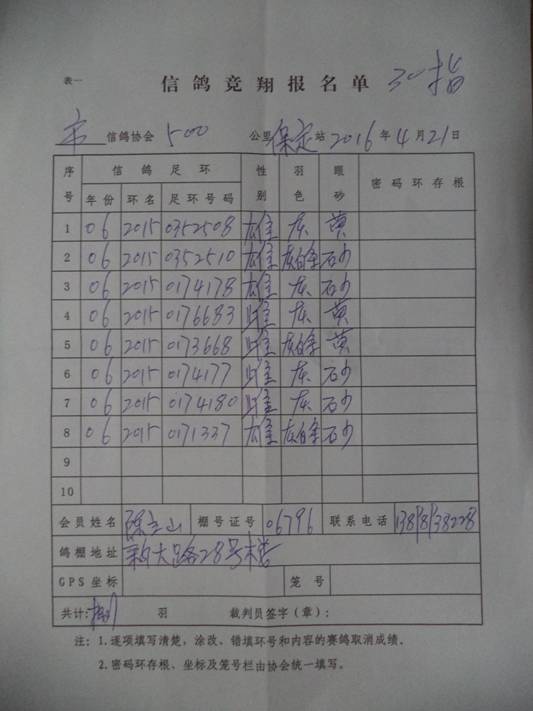 表一 信鸽竞翔报名单 30指
市 信鸽协会 500 公里 保定 站 2016 年 4 月 21 日
序号 信鸽足环 性别 羽色 眼砂 密码环存根
年份 环名 足环号码
1 06 2015 0352508 雄 灰 黄
2 06 2015 0352510 雄 灰白条 砂
3 06 2015 0174178 雄 灰 砂
4 06 2015 0176683 雌 灰 黄
5 06 2015 0173668 雌 灰白条 黄
6 06 2015 0174177 雌 灰 砂
7 06 2015 0174180 雌 灰 砂
8 06 2015 0171337 雄 砂
9
10
会员姓名 陈立山 棚号证号 06796 联系电话
鸽棚地址 大路28号楼
GPS坐标 笼号
共计: 捌 羽 裁判员签字(章):
注:1.逐项填写清楚,涂改、错填环号和内容的赛鸽取消成绩。
2.密码环存根、坐标及笼号栏由协会统一填写。